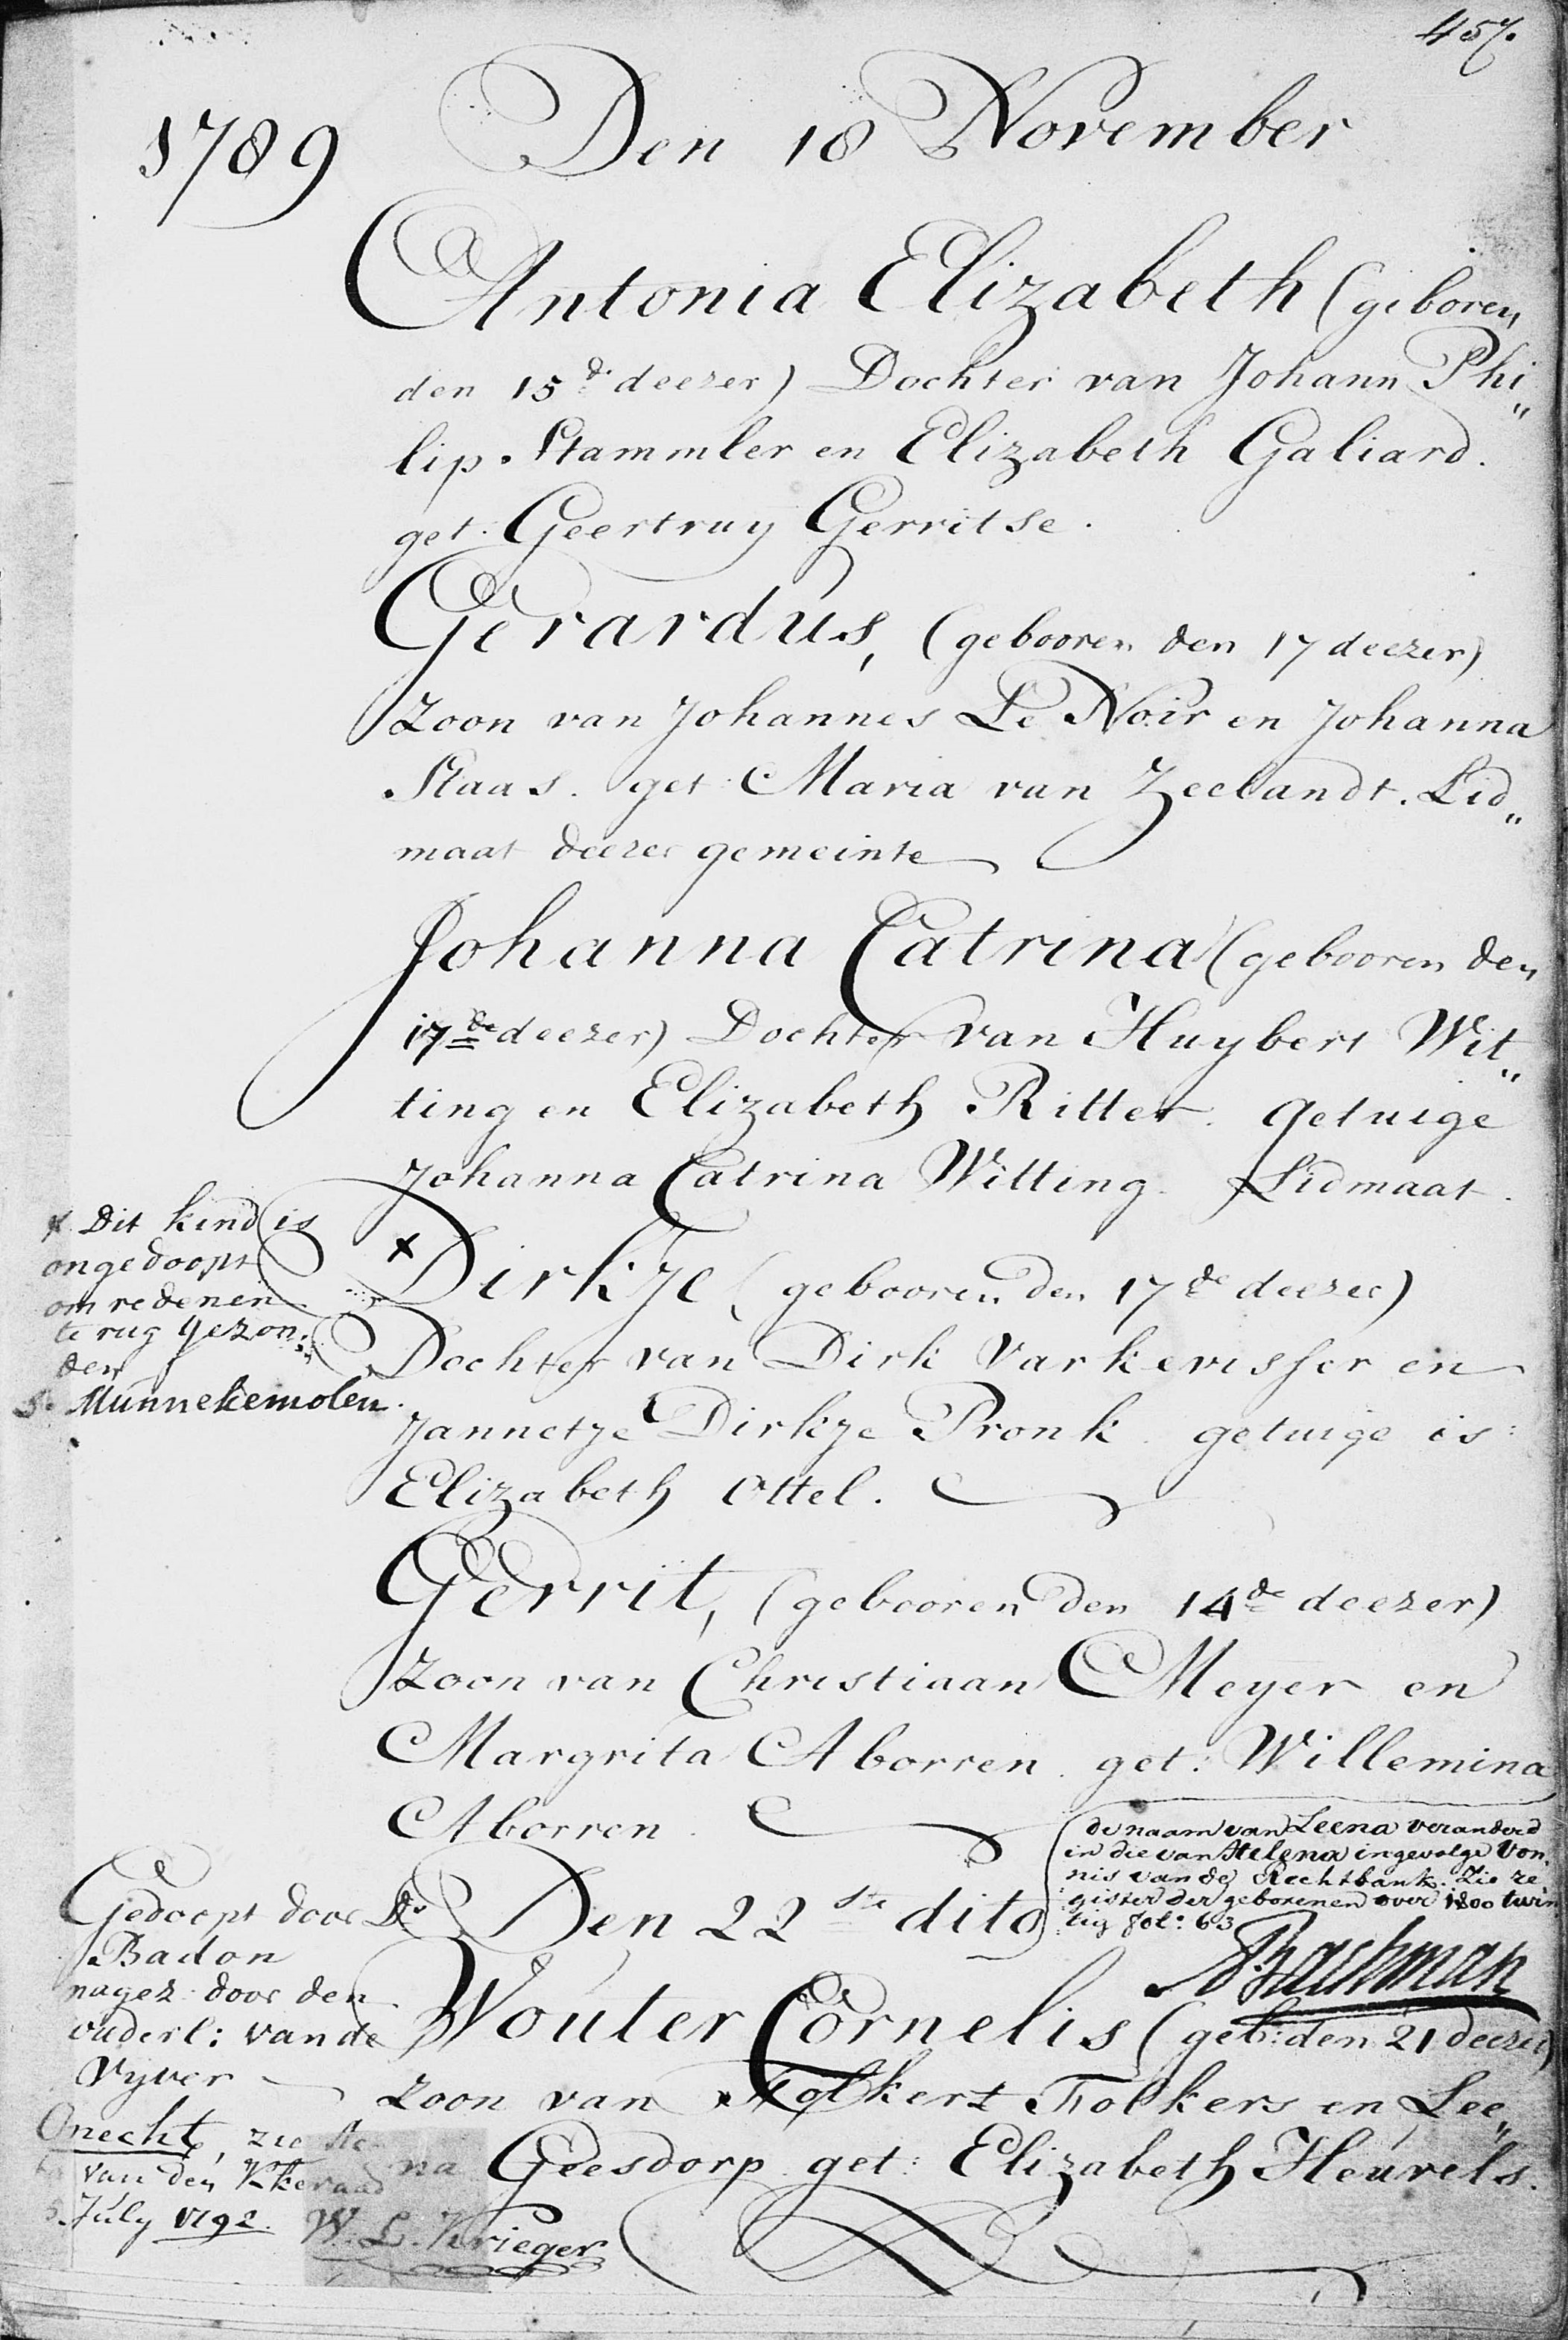 457.
1789 Den 18 November
Antonia Elizabeth (geboren
den 15d deezer) Dochter van Johann Phi„
lip Stammler en Elizabeth Galiard.
get: Geertruy Gerritse.
Gerardus, (gebooren den 17 deezer)
Zoon van Johannes Le Noir en Johanna
Staas. get: Maria van Zeelandt. Lid„
maat deezer gemeinte
Johanna Catrina (gebooren den
17de deezer) Dochter van Huybert Wit„
ting en Elizabeth Ritter. Getuige
Johanna Catrina Witting. Lidmaat.
x Dit kind is
ongedoopt
om redenen
te rug gezon„
den
Munnekemolen.
x Dirkje (gebooren den 17de deezer)
Dochter van Dirk Varkevisser en
Jannetje Dirkje Pronk. getuige is:
Elizabeth Ottel.
Gerrit, (gebooren den 14de deezer)
Zoon van Christiaan Meyer en
Margrita Aborren. get: Willemina
Aborren.
de naam van Leena veranderd
in die van Helena ingevolge Von„
nis van de Rechtbank. Zie re„
gister der geborenen over 1800 twin
tig fol: 63
Bachman
Gedoopt door Ds
Badon
nagez. door den
ouderl: van de
Vyver
Den 22ste dito
Wouter Cornelis (geb: den 21 deezer)
zoon van Folkert Folkers en Lee„
na Geesdorp get: Elizabeth Heuvels.
Onecht, zie
van den Kerkeraad
5 July 1792.
W. L. Krieger